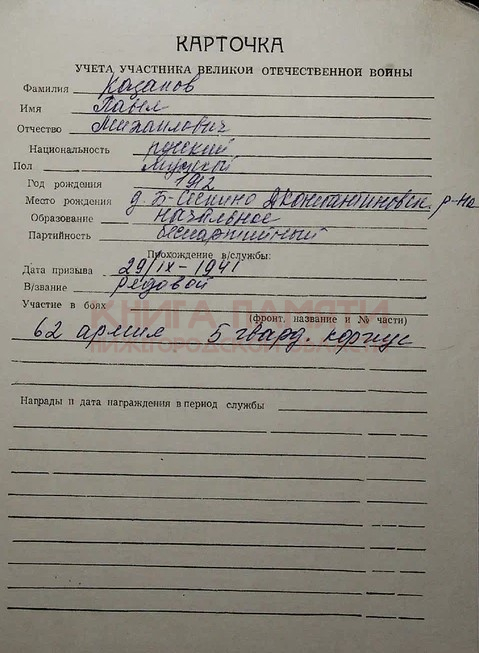 КАРТОЧКА
УЧЕТА УЧАСТНИКА ВЕЛИКОЙ ОТЕЧЕСТВЕННОЙ ВОЙНЫ
Фамилия Казаков
Имя Павел
Отчество Михайлович
Национальность русский
Пол мужской
Год рождения 1912
Место рождения д. Б-Сескино Дконстантиновск. р-на
Образование начальное
Партийность беспартийный
Прохождение в/службы:
Дата призыва 29/IX-1941
В/звание рядовой
Участие в боях
КНИГА ПАМЯТИ
(фронт, название и № части)
62 армия 5 гвард. корпус
НИЖЕГОРОДСКОЙ ОБЛАСТИ
Награды и дата награждения в период службы